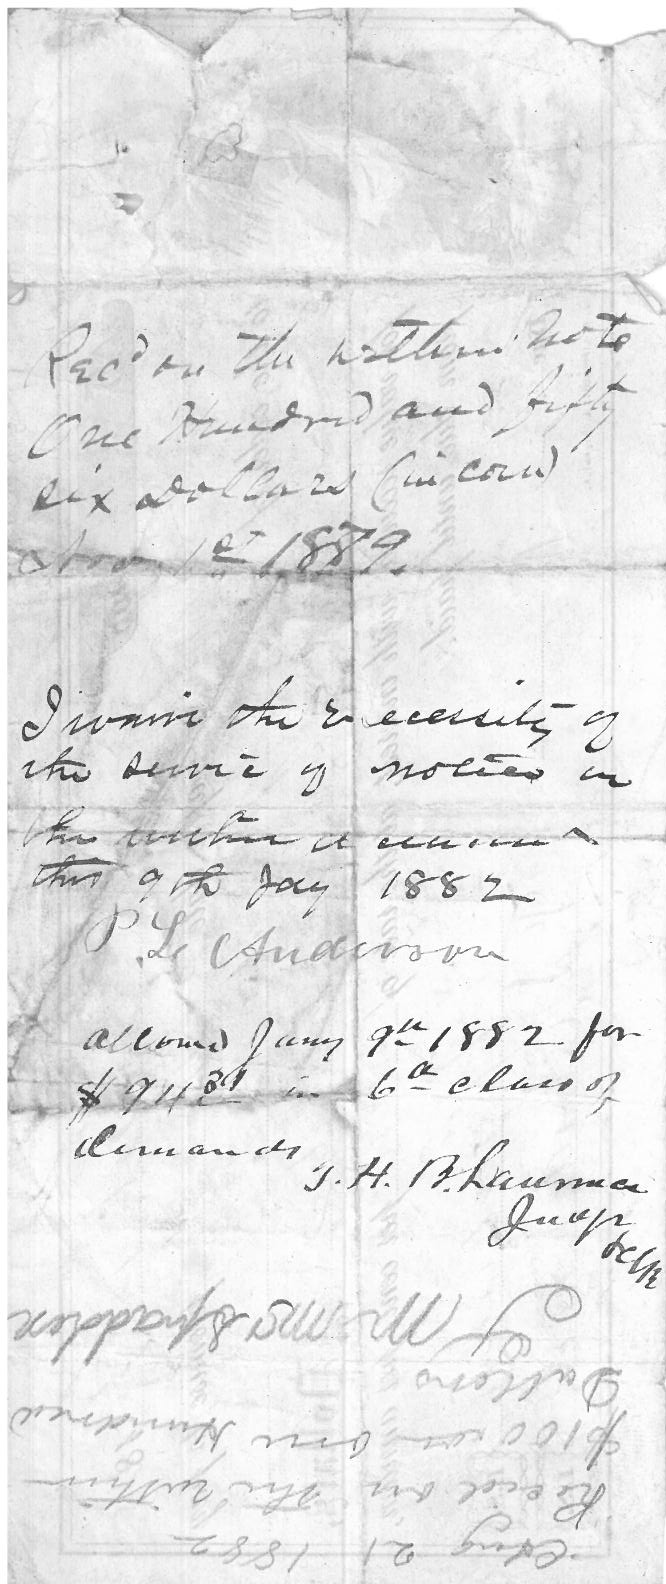 Recd on the within Note
One Hundred and fifty
six Dollars (in coin)
Nov 1st 1889.
I waive the necessity of
the service of notice in
the within
this 9th Jay 1882
P. L. Anderson
allowed Jany 9th 1882 for
$94 in 6th class of
demands
J. H. B. Lawrence
Judge
Aug 21 1882
Recid on the within
$100 00 one Hundred
Dollers
M McSpadden